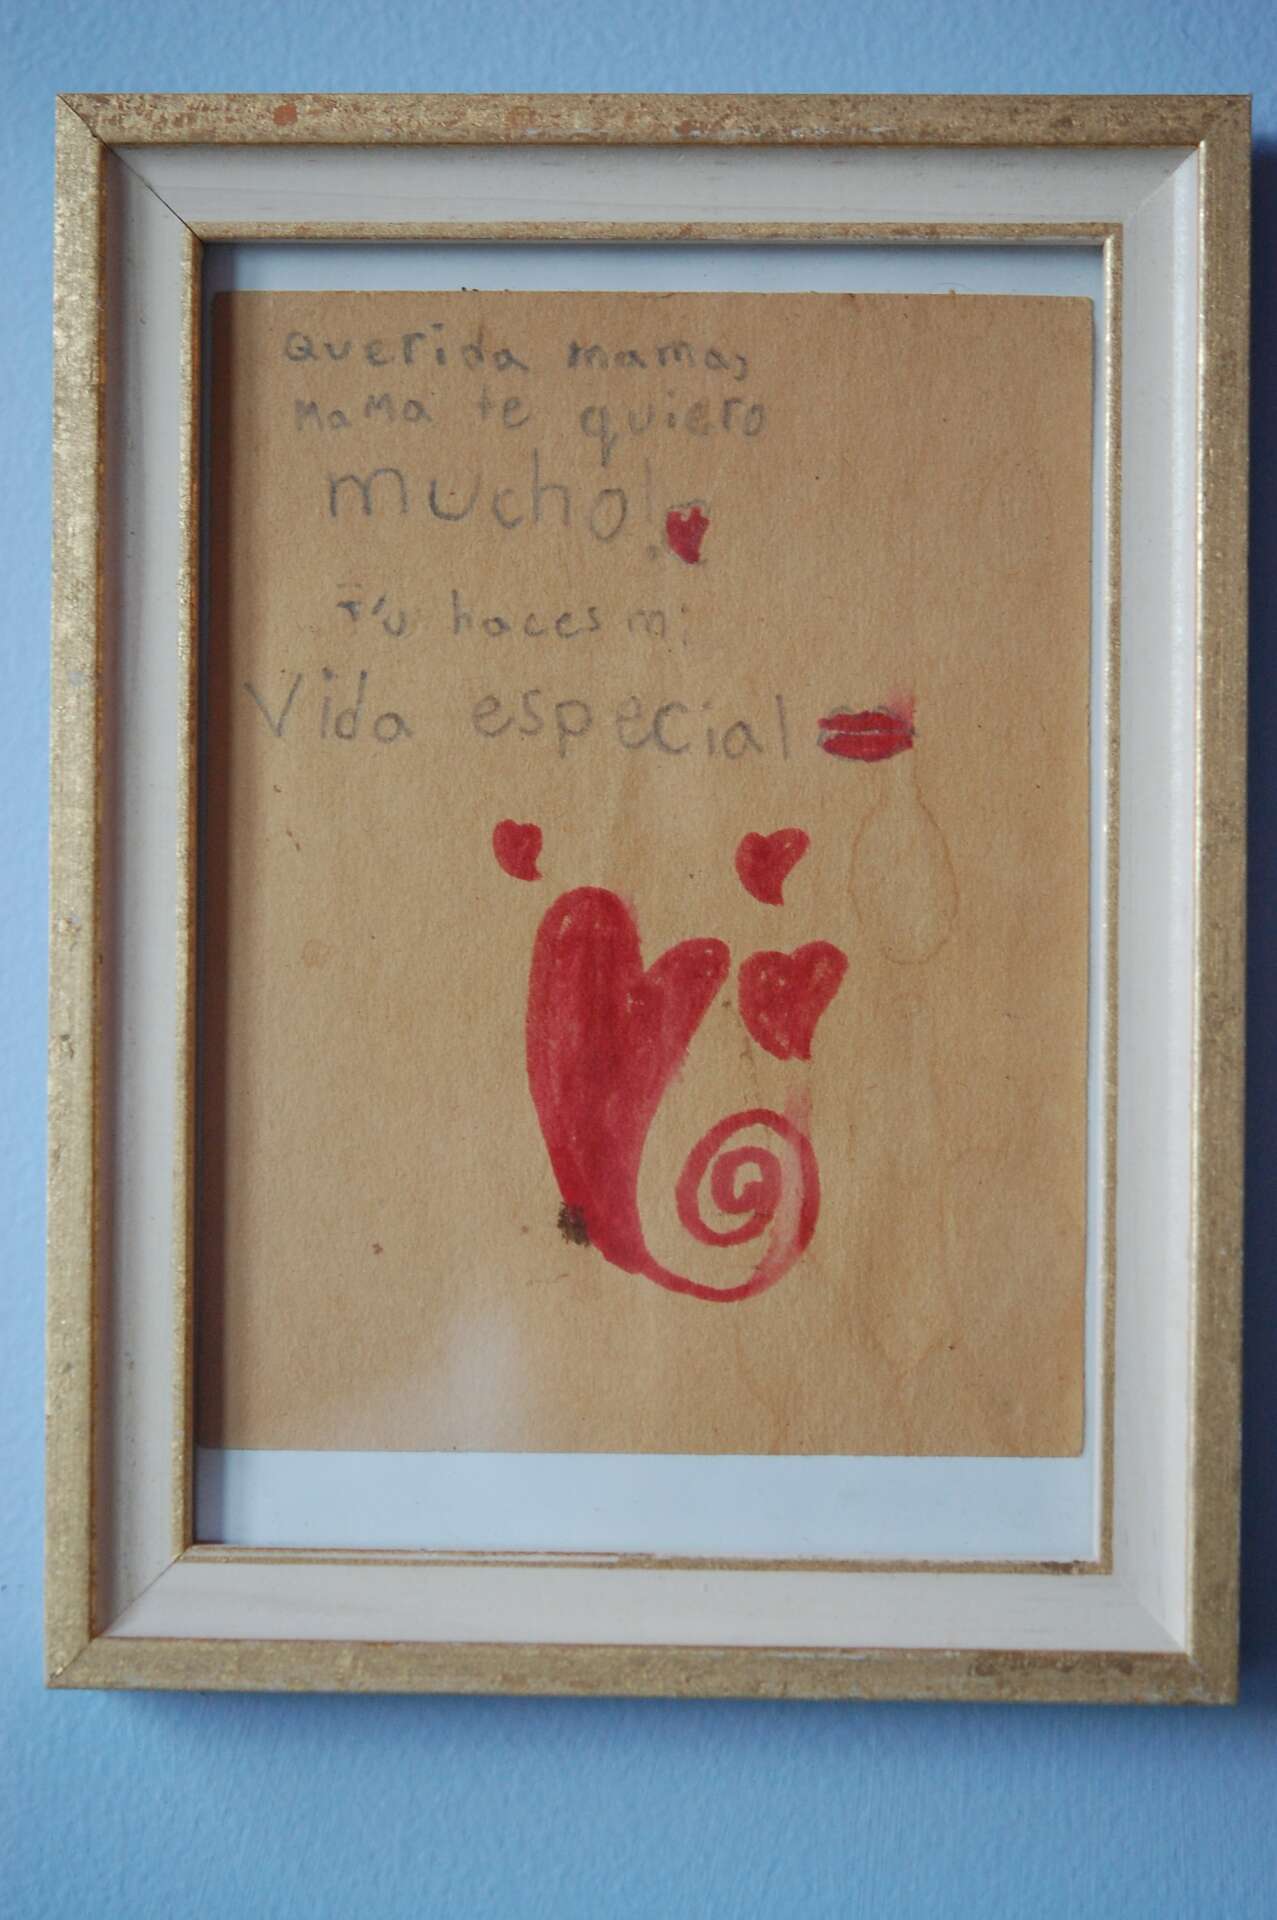 Querida mama,
MaMa te quiero
mucho!
Tú haces mi
Vida especial